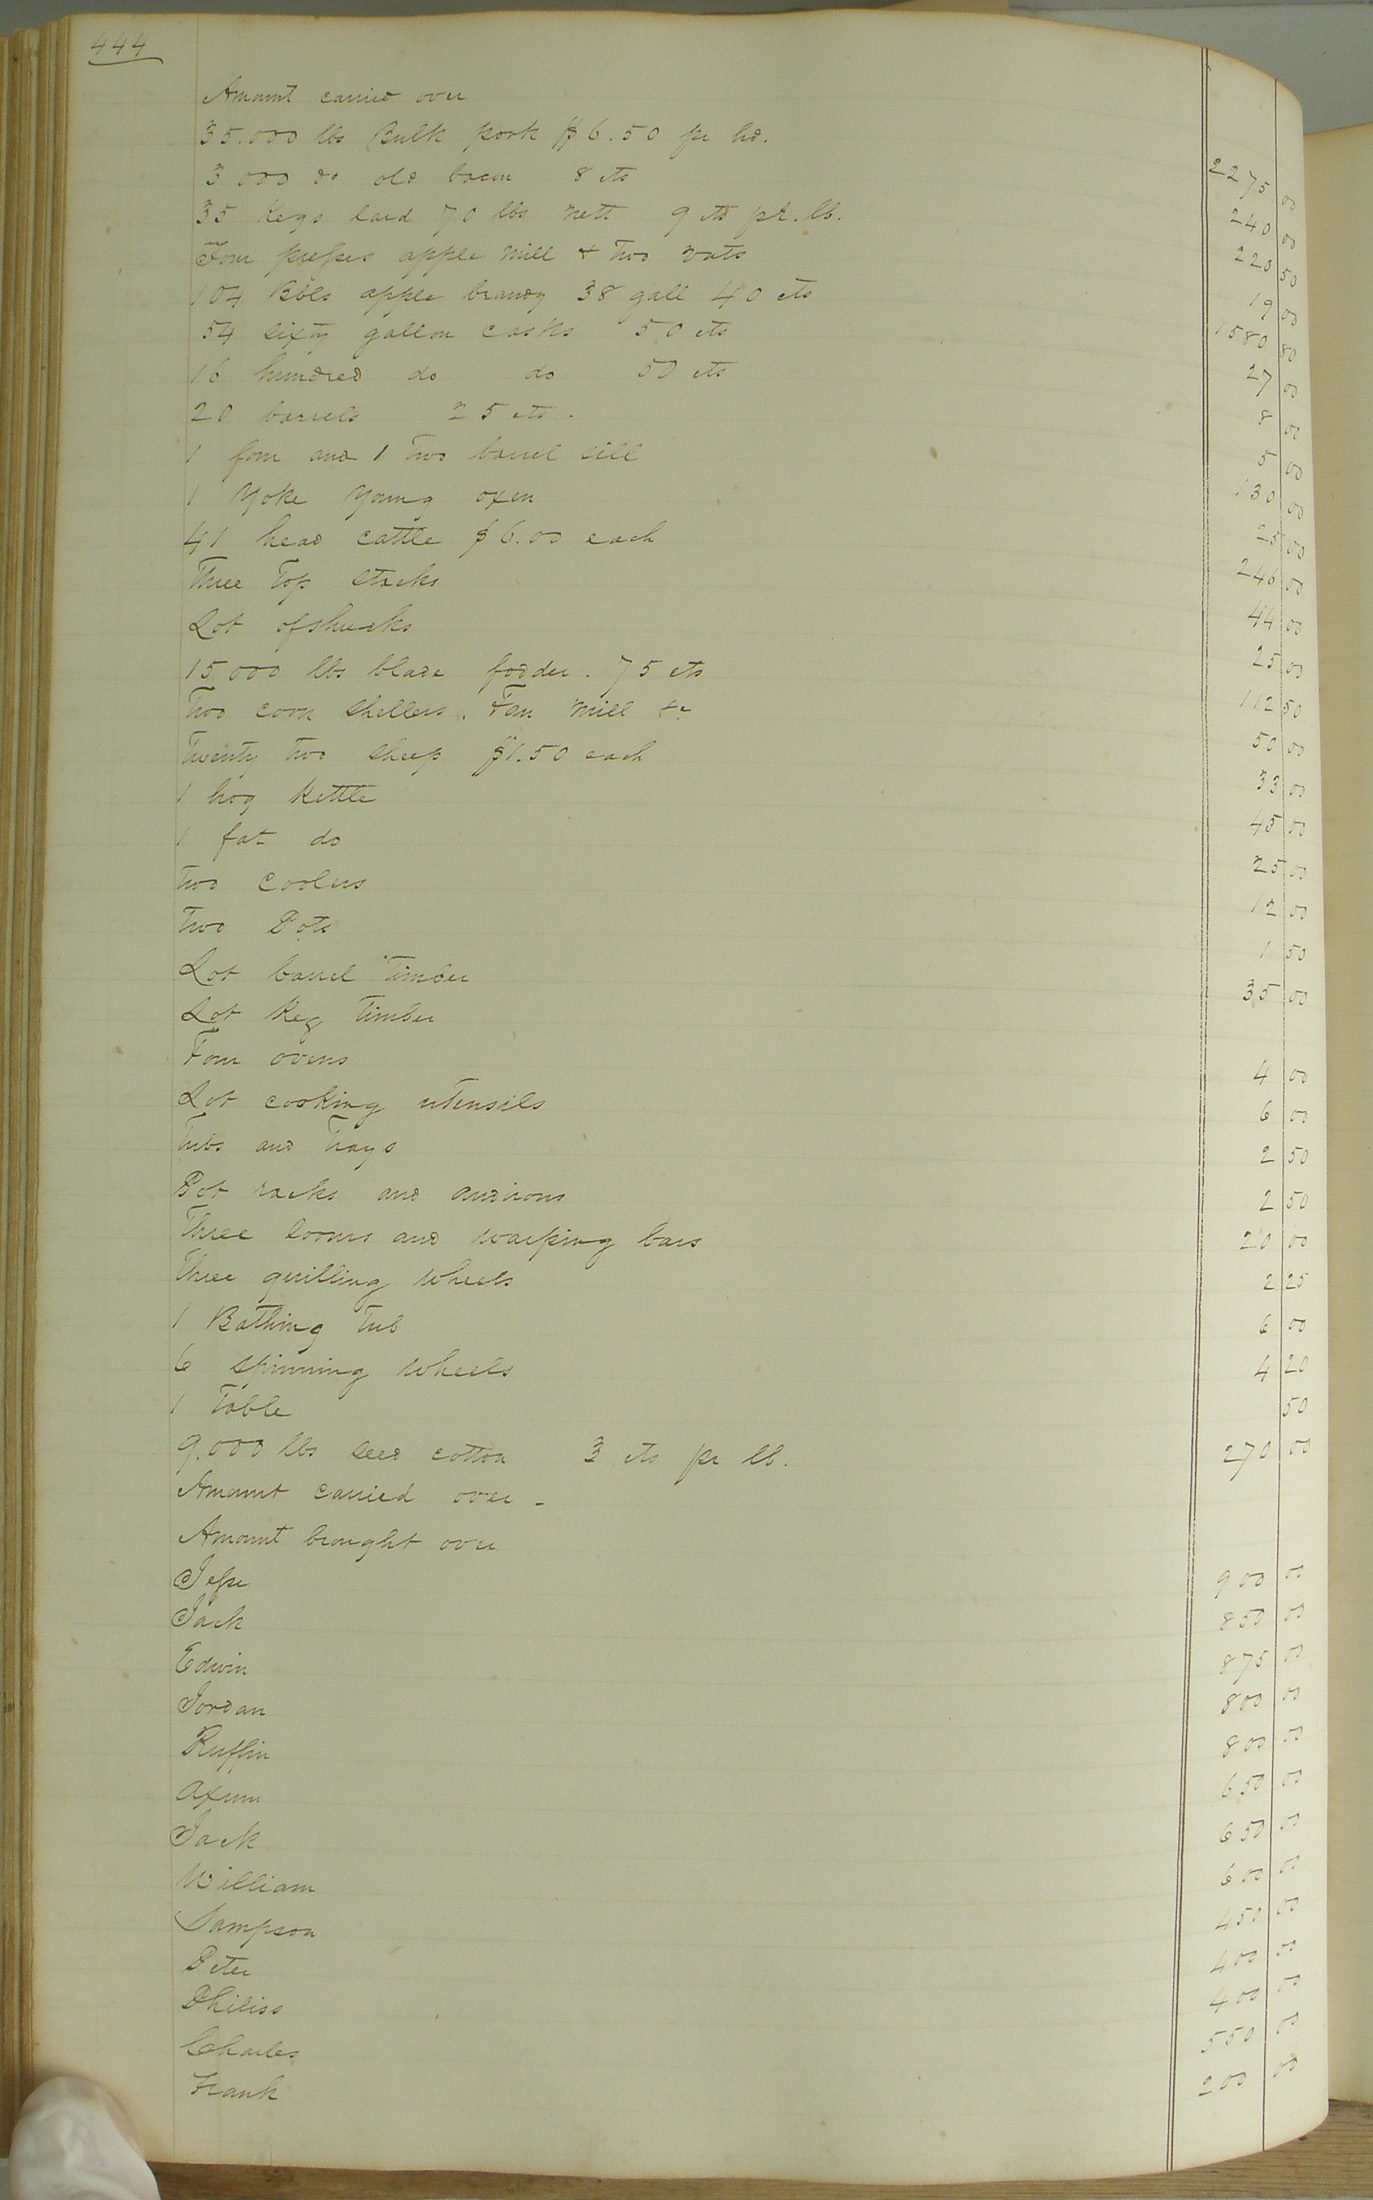 444
Amount carried over
35.000 lbs Bulk pork $6.50 pr hd. 2275 00
3 000 do old bacon 8 cts 240 00
35 Kegs lard 70 lbs nett 9 cts pr. lb. 220 50
Four presses apple mill & two vats 19 00
104 Bbls apple brandy 38 gall 40 cts 1580 80
54 sixty gallon casks 50 cts 27 00
16 hundred do do 50 cts 8 00
20 barrels 25 cts. 5 00
1 four and 1 two barrel still 130 00
1 Yoke Young oxen 25 00
41 head cattle $6.00 each 246 00
Three Top stacks 44 00
Lot of shucks 25 00
15,000 lbs blade fodder. 75 cts 112 50
Two corn shellers. Fan mill &c 50 00
Twenty two sheep $1.50 each 33 00
1 hog Kettle 45 00
1 fat do 25 00
two coolers 12 00
two Pots 1 50
Lot barrel Timber 35 00
Lot Keg Timber
Four ovens 4 00
Lot cooking utensils 6 00
Tubs and Trays 2 50
Pot racks and andirons 2 50
Three looms and warping bars 20 00
Three quilling wheels 2 25
1 Bathing Tub 6 00
6 spinning wheels 4 20
1 Table 50
9.000 lbs seed cotton 3 cts pr lb. 270 00
Amount carried over -
Amount brought over
Jesse 900 00
Jack 850 00
Edwin 875 00
Jordan 800 00
Ruffin 800 00
Axum 650 00
Jack 650 00
William 600 00
Sampson 450 00
Peter 400 00
Philiss 400 00
Charles 550 00
Frank 200 00